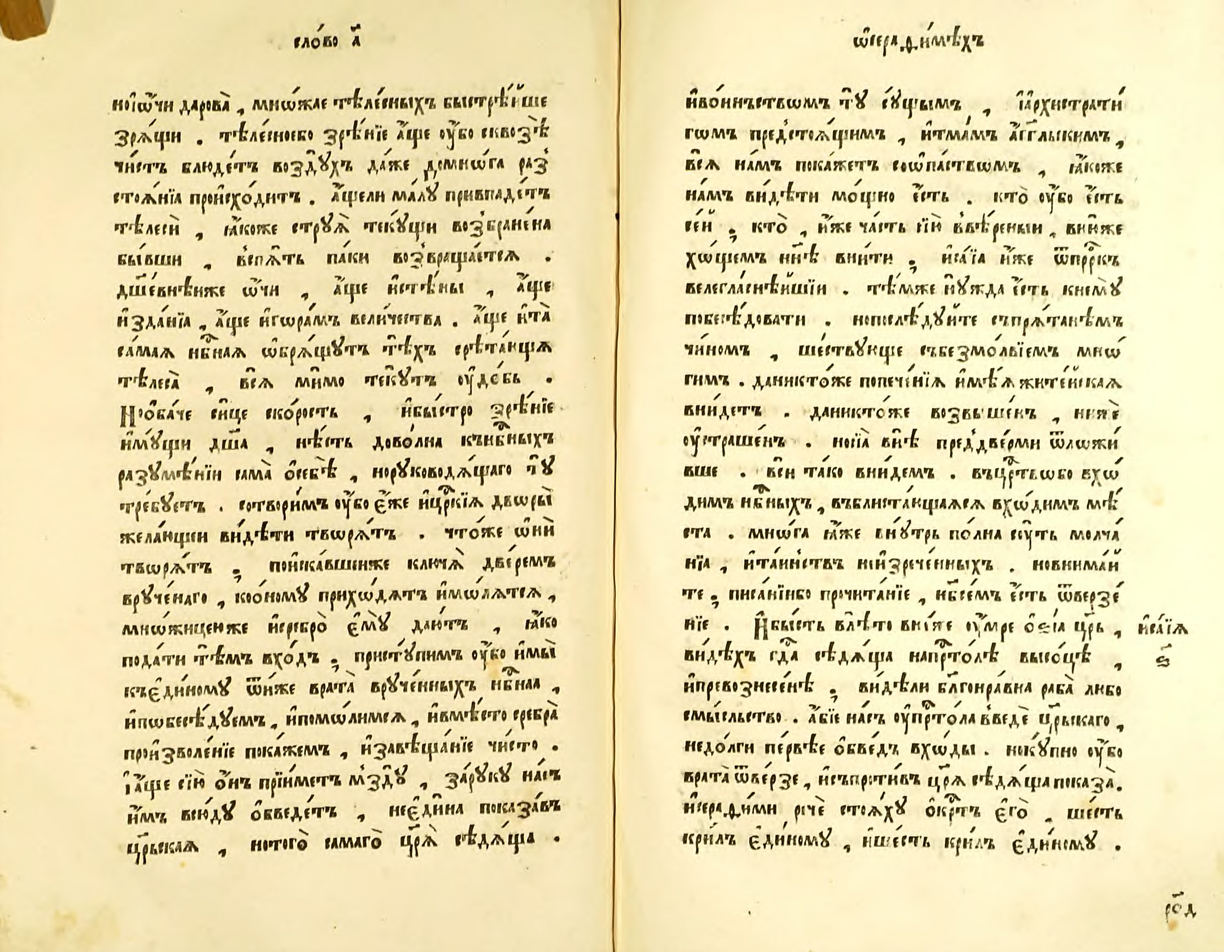 сло́во а҃
но́ѡ҆чи дарова̀, мно́жае тѣле́сныхъ быстрѣ́йше
зрѧ́щи . тѣле́сноебо зрѣ́нїе а҆́ще ᲂу҆́бо сквозѣ̀
чи́стъ блюде́тъ возⷣꙋхъ да́же домно́га раз̾
стоѧ́нїа происхо́дитъ . а҆́щели ма́лꙋ привпаде́тъ
тѣ́леси , ꙗ҆́коже стрꙋѧ̀ текꙋ́щи возбране́на
бы́вши , вспѧ́ть па́ки возвраща́етсѧ .
дш҃е́внѣиже ѡ҆́чи , а҆́ще и҆стѣ́ны , а҆́ще
и҆зда́нїа , а҆́ще и҆гѡра́мъ вели́чества . а҆́ще и҆та̀
са́маѧ нб҇наѧ ѡ҆брѧ́щꙋтъ тѣ́хъ срѣта́ющаѧ
тѣлеса̀ , всѧ̀ ми́мо текꙋ́тъ ᲂу҆до́бь .
Но҆ба́че си́це ско́рость , и҆бы́стро зрѣ́нїе
и҆мꙋ́щи дш҃а , нѣ́сть дово́лна къ нб҇ныхъ
разꙋмѣ́нїи сама̀ ѡ҆себѣ̀ , норꙋководѧ́щаго тꙋ̀
тре́бꙋетъ . сотвори́мъ ᲂу҆́бо є҆́же и҆цр҇кїѧ дворы̀
жела́ющеи ви́дѣти творѧ́тъ . что́же ѡ҆нѝ
творѧ́тъ ; пои҆ска́вшеиже ключѧ̀ две́ремъ
врꙋче́наго , коѻ҆номꙋ прихо́дѧтъ и҆мо́лѧтсѧ ,
мно́жицеиже и҆сребро̀ є҆мꙋ̀ даю́тъ , ꙗ҆́ко
пода́ти тѣ́мъ вхо́дъ ; пристꙋ́пимъ ᲂу҆́бо и҆мы̀
къ є҆ди́номꙋ ѿни́же врата̀ врꙋче́нныхъ нб҇наа ,
и҆побесѣ́дꙋемъ , и҆помо́лимсѧ , и҆вмѣ́сто сребра̀
произволе́нїе пока́жемъ , и҆завѣща́нїе чи́сто .
І҆а҆́ще сїю̀ ѻ҆́нъ прїи́метъ мздꙋ̀ , зарꙋ́кꙋ на́съ
и҆́мъ всю́дꙋ ѻ҆бведе́тъ , неє҆ди́на показа́въ
цр҇ьскаѧ , нотого̀ самаго̀ цр҃ѧ̀ сѣдѧ́ща .
ѡ҆серафи́мѣхъ
и҆во́инъствѡмъ тꙋ̀ сꙋ́щымъ , і҆а҆рхистрати́
гомъ предстоѧ́щимъ , и҆тма́мъ а҆́гг҃льскимъ ,
всѧ̀ на́мъ пока́жетъ соѡ҆па́ствомъ , ꙗ҆́коже
на́мъ ви́дѣти мо́щно є҆́сть . кто̀ ᲂу҆́бо є҆́сть
се́й ; кто̀ , и҆́же ча́сть сїю̀ ввѣ́реныи , вни́же
хо́щемъ нн҃ѣ вни́ти ; и҆са́їа и҆́же ѿпр҇ркъ
велегла́снѣишїи . тѣ́мже нꙋ́жда є҆́сть кнемꙋ̀
побесѣ́довати . нопослѣ́дꙋите съпрѧ́танѣмъ
чи́номъ , ше́ствꙋюще събезмо́лвїемъ мно́
гимъ . даникто́же попече́нїѧ и҆мѣ́ѧ жите́йскаѧ
вни́детъ . даникто́же возвы́шенъ , нижѐ
ᲂу҆страше́нъ . носїа внѣ̀ преⷣдве́рми ѿложи́
вше . всѝ та́ко вни́демъ . въцр҇твобо вхо́
димъ нб҇ныхъ , въблиста́ющаѧсѧ вхо́димъ мѣ́
ста . мно́га ꙗ҆́же внꙋ́трь по́лна сꙋ́ть молча́
нїа , и҆та́инствъ неизрече́нныхъ . новнима́й
те ; писа́нїибо прочита́нїе , нб҃сѐмъ є҆́сть ѿверзе́
нїе . И҆бы́сть влѣ́то вне́же ᲂу҆́мре ѻ҆зі́а цр҃ь ,
ви́дѣхъ гдⷭ҇а сѣдѧ́ща напрⷭ҇то́лѣ высо́цѣ ,
и҆превознесе́нѣ ; ви́дѣли бл҃гонра́вна раба̀ либо
смы́сльство . а҆́бїе на́съ ᲂу҆прⷭ҇то́ла введѐ цр҇ьскаго ,
недо́лги пе́рвѣе ѻ҆бве́дъ вхо́ды . нокꙋ́пно ᲂу҆́бо
врата̀ ѿве́рзе , и҆съпроти́въ цр҃ѧ сѣдѧ́ща показа̀.
и҆серафи́ми речѐ стоѧ́хꙋ ѻ҆́крⷭ҇тъ є҆го̀ , ше́сть
кри́лъ є҆ди́номꙋ , и҆ше́сть кри́лъ є҆ди́номꙋ .
и҆са́їѧ
ѕ҃
ро҃д